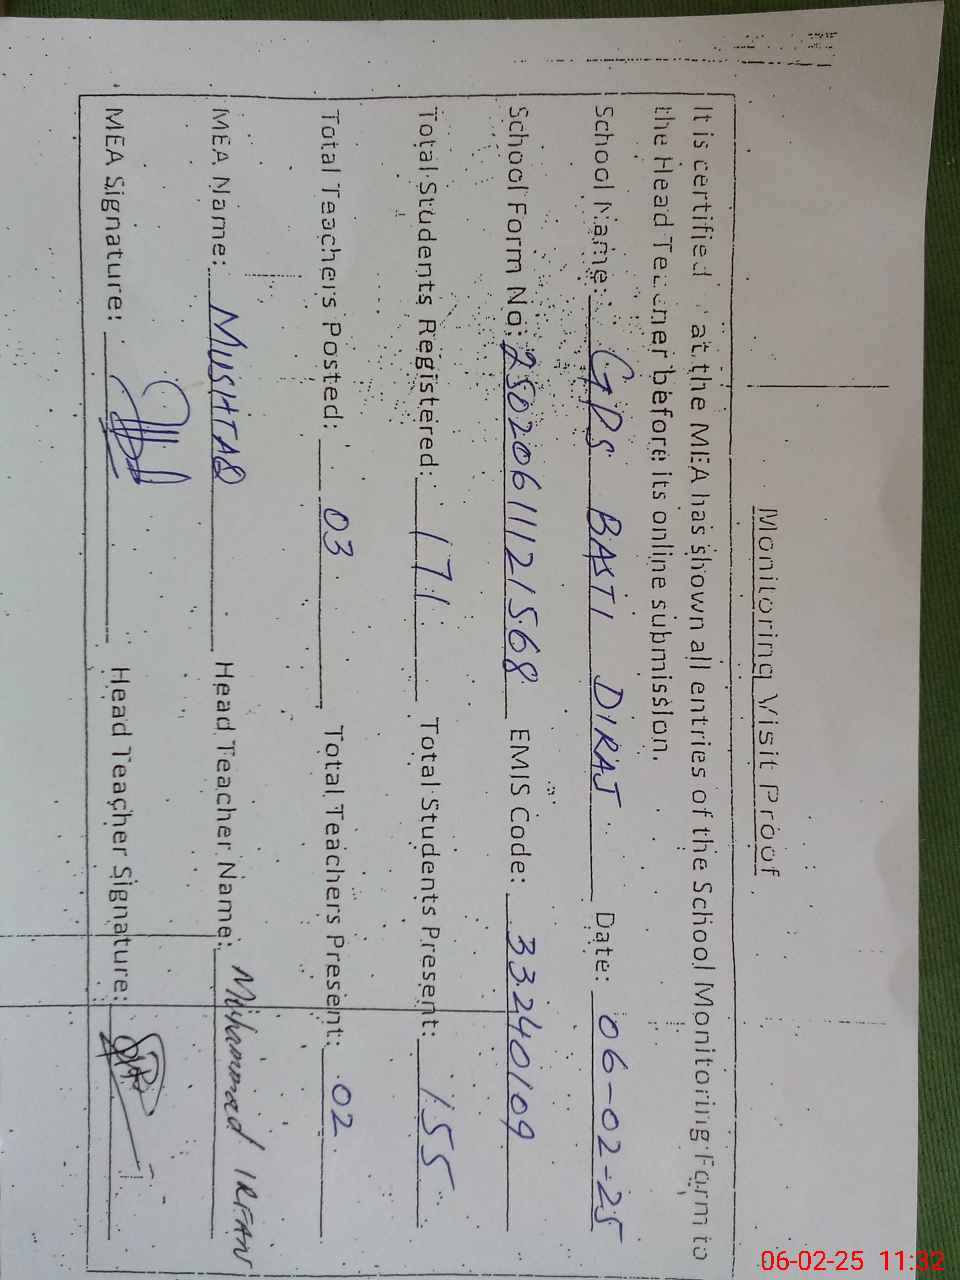 Monitoring Visit Proof
It is certified at the MEA has shown all entries of the School Monitoring Form to
the Head Teacher before its online submission.
School Name: GPS BASTI DIRAJ Date: 06-02-25
School Form No: 2502061121568 EMIS Code: 33240109
Total Students Registered: 171 Total Students Present: 155
Total Teachers Posted: 03 Total Teachers Present: 02
MEA Name: MUSHTAQ Head Teacher Name: Muhammad IRFAN
MEA Signature: Head Teacher Signature:
06-02-25 11:32